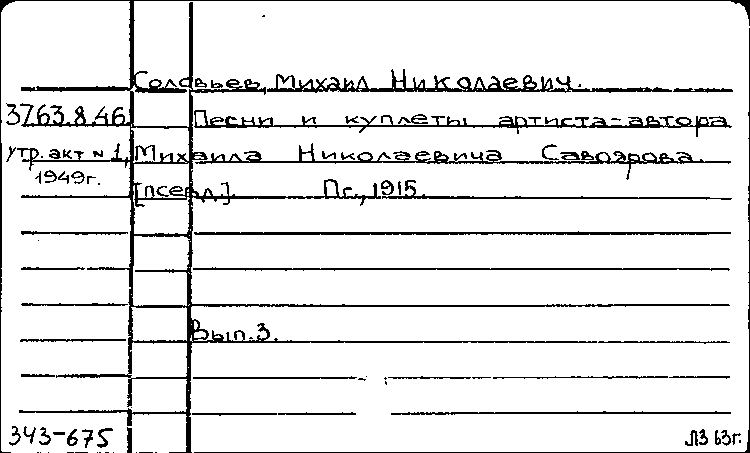 Соловьев, Михаил Николаевич.
3763.8.46 Песни и куплеты артиста-автора
утр. акт № 1, Михаила Николаевича Савоярова.
1949г. [псевд.]. Пг., 1915.
Вып. 3.
343-675 ЛЗ 63г.